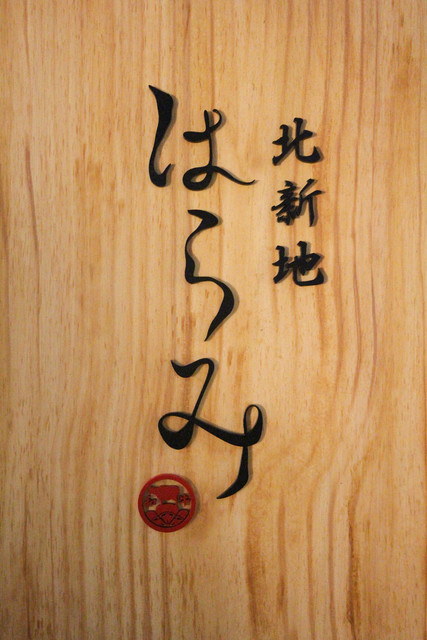 北新地
はらみ